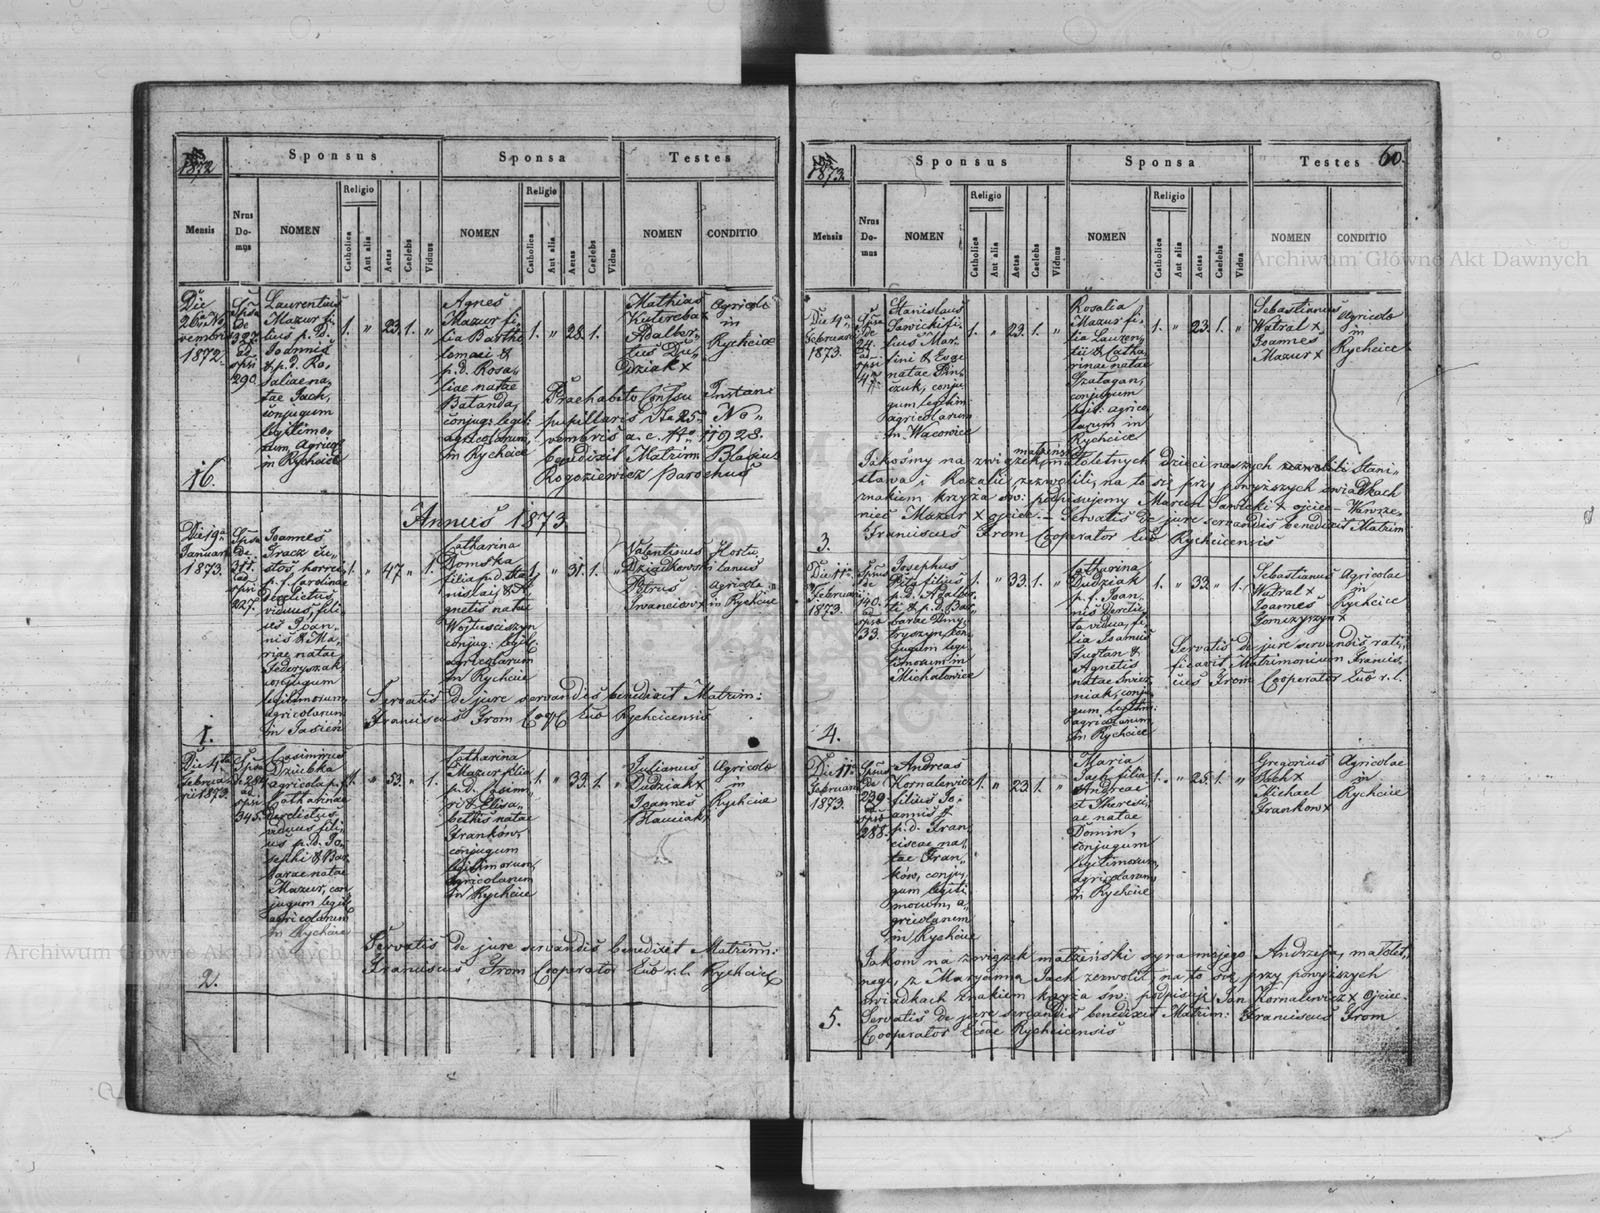 1872
Sponsus
Sponsa
Testes
Mensis
Nrus Domus
NOMEN
Religio
Catholica
Aut alia
Aetas
Caelebs
Viduus
NOMEN
Religio
Catholica
Aut alia
Aetas
Caelebs
Vidua
NOMEN
CONDITIO
Die
26 No
vembris
1872.
Spsa
de
327.
ad
spsi
290.
Laurentius
Mazur fi
lius p. d.
Joannis
& p. d. Ro
saliae na
tae Jach,
conjugum
legitimo
rum, agricol.
in Rychcice
1. " 23. 1. "
Agnes
Mazur fi
lia Bartho
lomaei &
p. d. Rosa
liae natae
Batanda,
conjug: legit:
agricolarum
in Rychcice
1. " 28. 1.
Mathias
Adalber
tus Du
dziak x
Agricolae
in
Rychcice
Praehabito Consensu Instan
pupillaris dto 25. No
vembris a. c. No 11928.
benedixit Matrim Blasius
Rogoziewicz parochus
16.
Annus 1873.
Die 19
Januarii
1873.
Spsa
de
311.
ad
spsi
227.
Joannes
Tracz cu
stos horrei
p. f. Carolinae
derelictus
viduus, fili
us Joan
nis & Ma
riae natae
Federyszak
conjugum
legitimorum
agricolarum
in Jasień
1. " 47. " 1.
Catharina
Domska
filia p. d. Sta
nislai & A
gnetis natae
Wojtusciszyn
conjug: legit:
agricolarum
in Rychcice
1. " 31. 1. "
Valentinus
Dziadkowski
Petrus
Iwanciow x
Hortu
lanus
agricola
in Rychcice
Servatis de jure servandis benedixit Matrim:
Franciscus From Coop Eub Rychcicensis
1.
Die 4ta
Februa
rii 1873.
Spsa
de 284
ad
spsi
345.
Casimirus
Dziubka
agricola p. f.
Catharinae
derelictus
viduus fili
us p. d. Jo
sephi & Bar
barae natae
Mazur, con
jugum legit:
agricolarum
in Rychcice
1. " 53. " 1.
Catharina
Mazur filia
p. d. Casimi
ri & Elisa
bethis natae
Franków,
conjugum
legitimorum,
agricolarum
in Rychcice
1. " 33. 1. "
Julianus
Dudziak x
Joannes
Agricolae
in
Rychcice
Servatis de jure servandis benedixit Matrim:
Franciscus From Cooperator Eub r. l. Rychcice
2.
1873.
Sponsus
Sponsa
Testes 60.
Mensis
Nrus Domus
NOMEN
Religio
Catholica
Aut alia
Aetas
Caelebs
Viduus
NOMEN
Religio
Catholica
Aut alia
Aetas
Caelebs
Vidua
NOMEN
CONDITIO
Die 4a
Februarii
1873.
Spsa
de
24.
ad
spsi
47.
Stanislaus
Sawicki fi
lius Mar
tini & Euge
natae Pin
czuk, conju
gum legitim
agricolarum
in Wacowice
1. " 23. 1. "
Rosalia
Mazur fi
lia Lauren
tii & Catha
rinae natae
Szatagan,
conjugum
legit: agrico
larum in
Rychcice
1. " 23. 1. "
Sebastianus
Watral x
Joannes
Mazur x
Agricolae
in
Rychcice
Jakośmy na związek małżeński małoletnych dzieci naszych Stani
sława i Rozalii zezwolili, na to się przy powyższych świadkach
znakiem krzyża św: podpisujemy Marcin Sawicki x ojciec – Wawrze
niec Mazur x ojciec. – Servatis de jure servandis benedixit Matrim
Franciscus From Cooperator Eub Rychcicensis
3.
Die 11a
Februarii
1873.
Spsus
de
140.
ad
spsa
33.
Josephus
Pita filius
p. d. Adalber
ti & p. d. Bar
barae Dmy
tryszyn, con
jugum legi
timorum in
Michałowice
1. " 33. 1. "
Catharina
Dudziak
p. f. Joan
nis derelic
ta vidua, fi
lia Joannis
Gustan &
Agnetis
natae Śnież
niak, conju
gum legitim:
agricolarum
in Rychcice
1. " 33. " 1.
Sebastianus
Watral x
Joannes
Tomczyszyn x
Agricolae
in
Rychcice
Servatis de jure servandis rati
ficavit Matrimonium Francis
cus From Cooperator Eub r. l.
4.
Die 11a
Februarii
1873.
Spsus
de
239.
spsa
288.
Andreas
Kornalewicz
filius Jo
annis &
p. d. Fran
ciscae na
tae Fran
ków, conju
gum legiti
morum, a
gricolarum
in Rychcice
1. " 23. 1. "
Maria
Jach, filia
Andreae
et Theresi
ae natae
Domin,
conjugum
legitimorum,
agricolarum
in Rychcice
1. " 25. 1. "
Gregorius
Pech x
Michael
Frankow x
Agricolae
in
Rychcice
Jakom na związek małżeński syna mojego Andrzeja, małolet
nego, z Maryanną Jach zezwolił, na to się przy powyższych
świadkach znakiem krzyża św: podpisuję Jan Kornalewicz x ojciec.
Servatis de jure servandis benedixit Matrim: Franciscus From
Cooperator Eccae Rychcicensis
5.
Archiwum Główne Akt Dawnych
Archiwum Główne Akt Dawnych